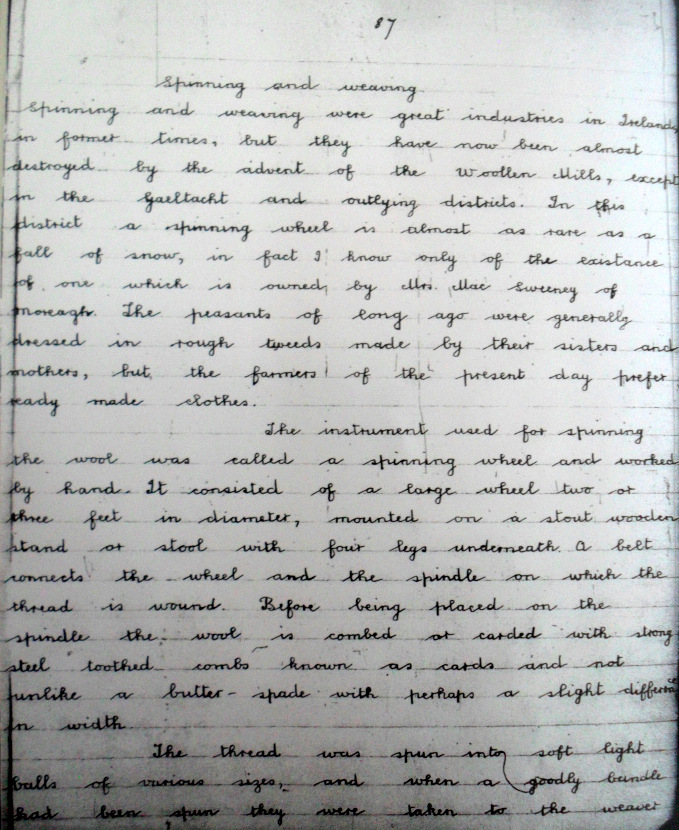 87
Spinning and weaving
Spinning and weaving were great industries in Ireland
in former times, but they have now been almost
destroyed by the advent of the Woollen Mills, except
in the Gaeltacht and outlying districts. In this
district a spinning wheel is almost as rare as a
fall of snow, in fact I know only of the existance
of one which is owned by Mrs. Mac Sweeney of
Moreagh. The peasants of long ago were generally
dressed in rough tweeds made by their sisters and
mothers, but the farmers of the present day prefer
ready made clothes.
The instrument used for spinning
the wool was called a spinning wheel and worked
by hand. It consisted of a large wheel two or
three feet in diameter, mounted on a stout wooden
stand or stool with four legs underneath. A belt
connects the wheel and the spindle on which the
thread is wound. Before being placed on the
spindle the wool is combed or carded with strong
steel toothed combs known as cards and not
unlike a butter-spade with perhaps a slight
in width
The thread was spun into soft light
balls of various sizes, and when a goodly bundle
had been spun they were taken to the weaver